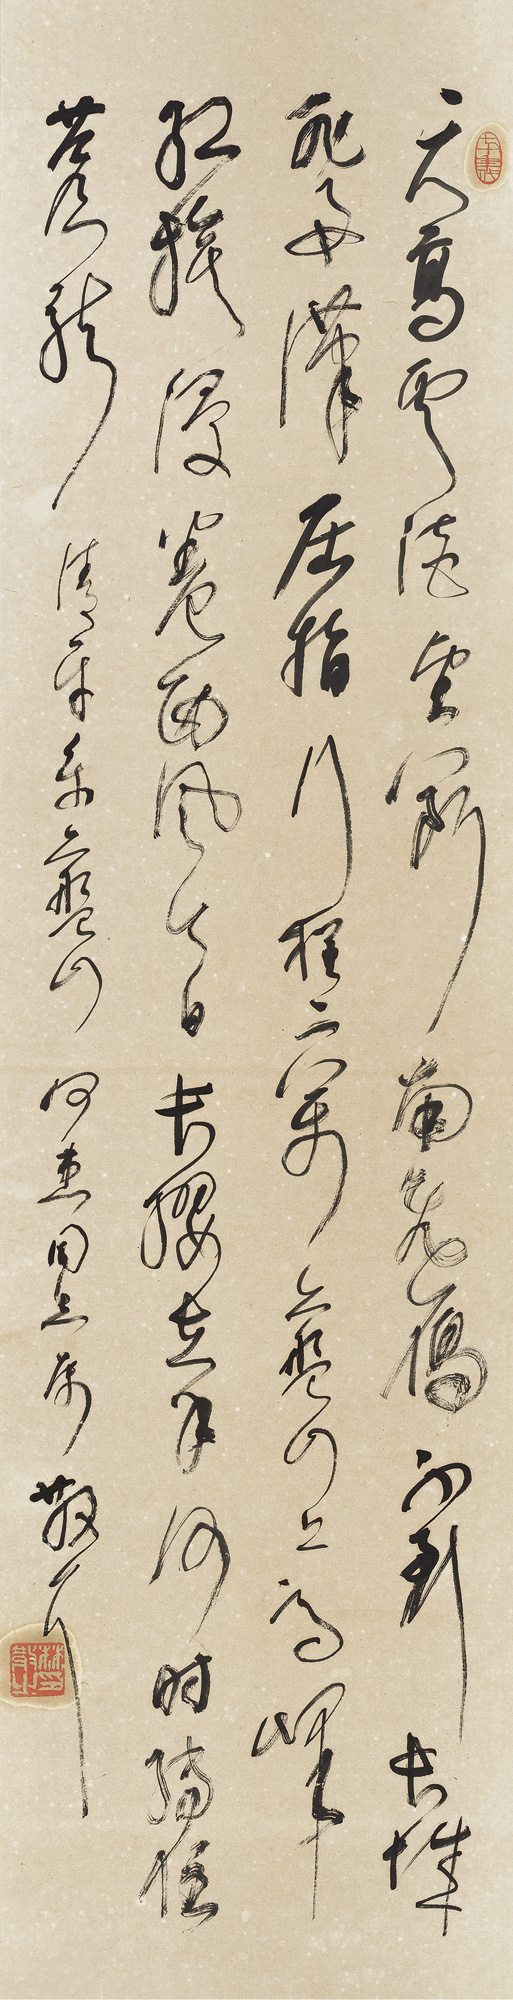 天高雲淡望斷南飛雁不到長城
非好漢屈指行程二萬六盤山上高峰
紅旗漫卷西風今日長纓在手何时縛住
蒼龍 清平樂六盤山 同志屬 散耳
林散之印